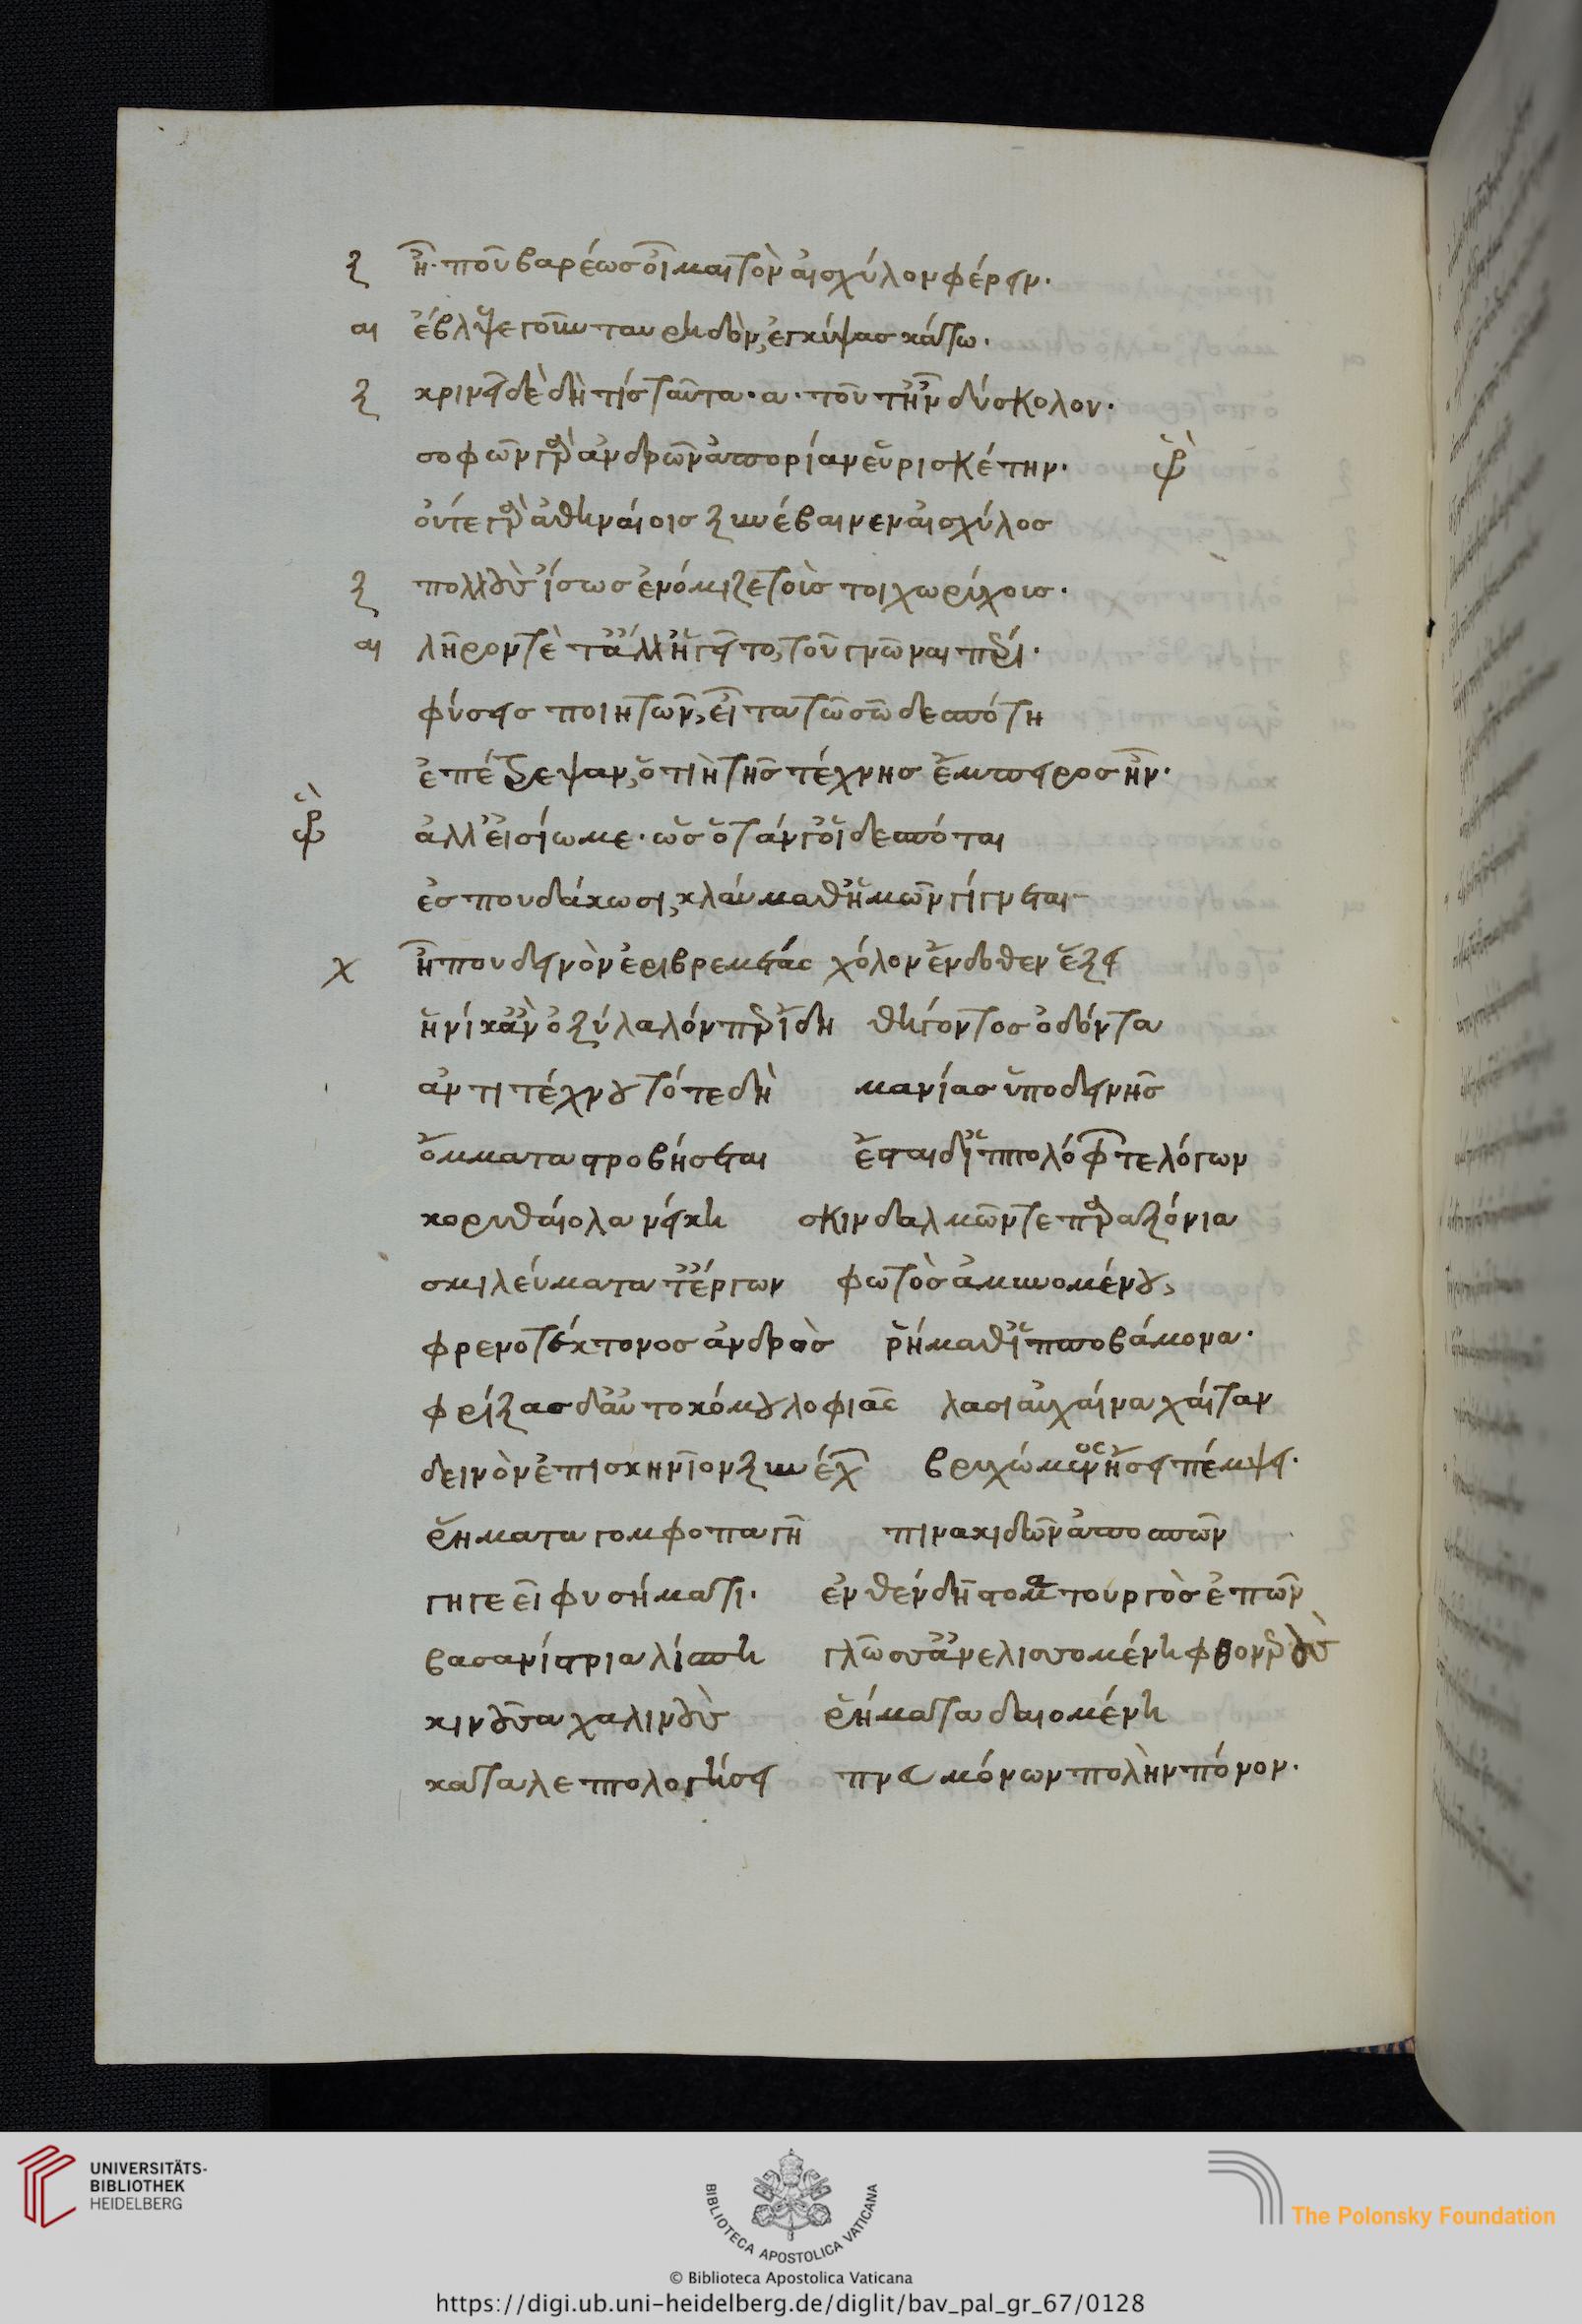 ξ ἦ· που βαρέως οἶμαι τὸν αἰσχύλον φέρειν·
αι ἔβλεψε γοῦν ταυρηδὸν, ἐγκύψας κάτω·
ξ κρινεῖ δὲ δὴ τίς ταῦτα· α· τοῦτ' ἦν δύσκολον·
σοφῶν γὰρ ἀνδρῶν ἀπορίαν εὑρισκέτην·
οὔτε γὰρ ἀθηναίοισ ξυνέβαινεν αἰσχύλοσ
ξ πολλοὺσ ἴσωσ ἐνόμιζε τοὺσ τοιχωρύχουσ·
αι λῆρόν τε τἄλλ' ἡγεῖτο, τοῦ γνῶναι πέρι·
φύσεισ ποιητῶν, εἶτα τῶ σῶ δεσπότη
ἐπέτρεψαν, ὁτιὴ τῆσ τέχνησ ἔμπειροσ ἦν·
ἀλλ' εἰσίωμεν· ὡσ ὅταν γ' οἱ δεσπόται
ἐσπουδάκωσι, κλαύμαθ' ἡμῶν γίγνεται
χ ἦπου δεινὸν ἐριβρεμέτασ χόλον ἔνδοθεν ἕξει
ἡνίκ' ἂν ὀξύλαλόν περ ἴδη θήγοντοσ ὀδόντα
ἀντιτέχνου τότε δὴ μανίασ ὑπὸ δεινῆσ
ὄμματα στροβήσεται ἔσται δ' ἱππολόφων τε λόγων
κορυθαίολα νείκη σκινδαλμῶν τε παραξόνια
σμιλεύματα τ' ἔργων φωτὸσ ἀμυνομένου,
φρενοτέκτονοσ ἀνδρὸσ ῥήμαθ' ἱπποβάμονα·
φρίξασ δ' αὐτοκόμου λοφιᾶσ λασιαύχαινα χαίταν
δεινὸν ἐπισκήνιον ξυνέχων βρυχώμενοσ ἥσει πέμψει·
ῥήματα γομφοπαγῆ πινακιδῶν ἀποσπῶν
γηγενεῖ φυσήματι· ἐνθένδη στοματουργὸσ ἐπῶν
βασανίστρια λίσπη γλῶσσ' ἀνελισσομένη φθονεροὺσ
κινοῦσα χαλινοὺσ ῥήματα δαιομένη
καταλεπτολογήσει πνευμόνων πολὺν πόνον·
UNIVERSITÄTS-
BIBLIOTHEK
HEIDELBERG
BIBLIOTECA APOSTOLICA VATICANA
The Polonsky Foundation
© Biblioteca Apostolica Vaticana
https://digi.ub.uni-heidelberg.de/diglit/bav_pal_gr_67/0128